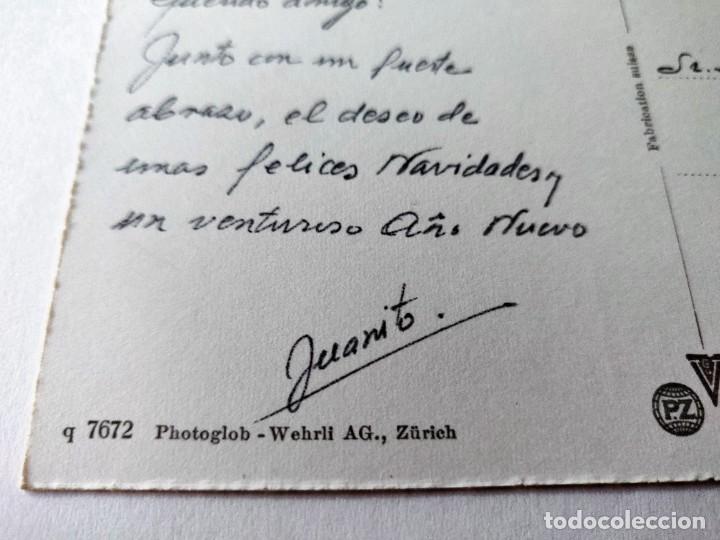 Querido amigo:
Junto con un fuerte
abrazo, el deseo de
unas felices Navidades y
un venturoso Año Nuevo
Juanito.
q 7672 Photoglob - Wehrli AG., Zürich
Fabrication suisse
Sr.
P.Z
todocoleccion.net